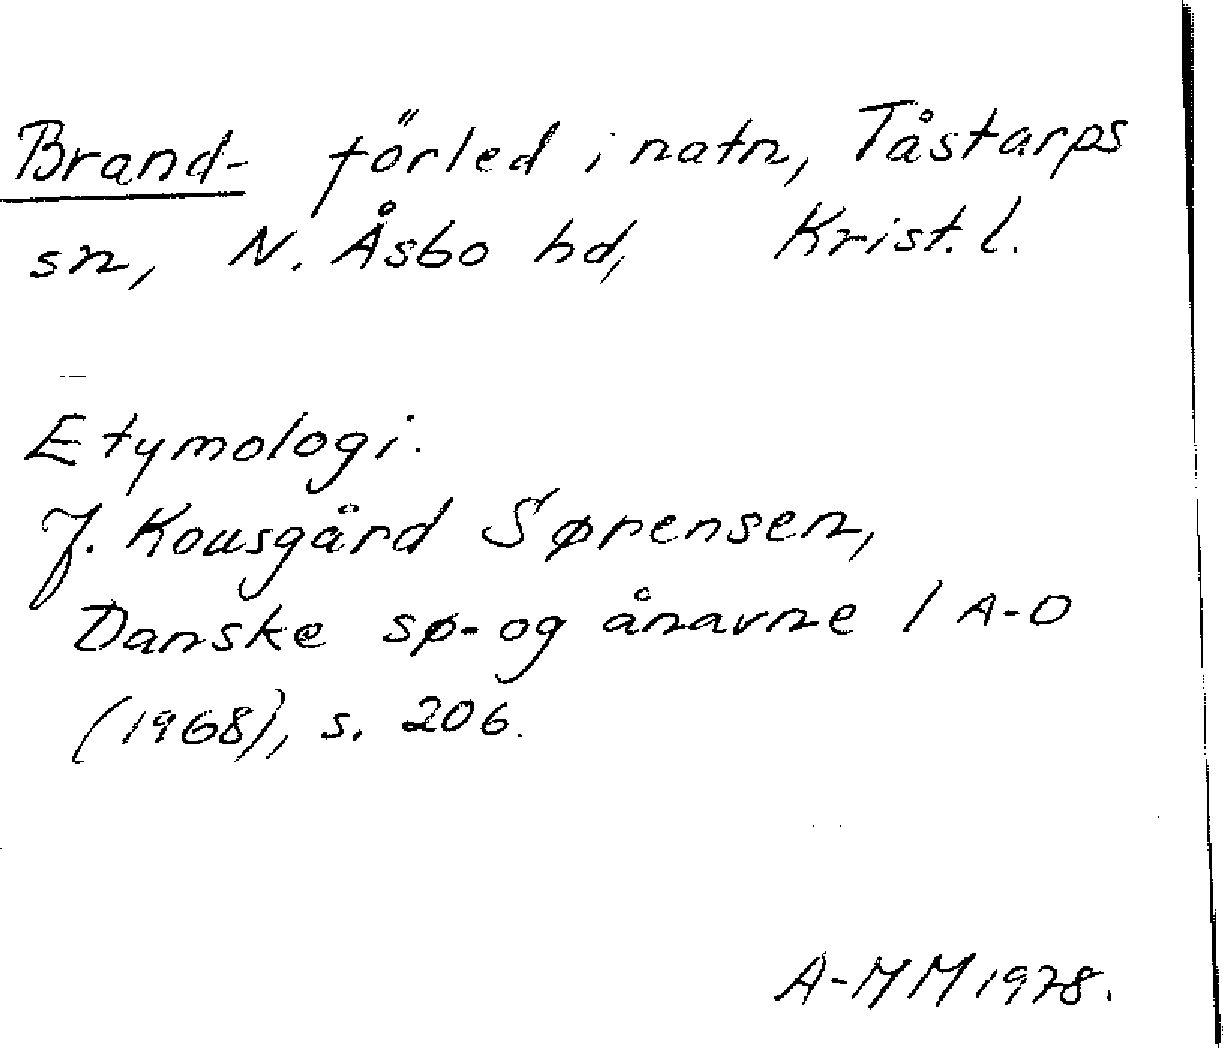 Brand- förled i natn, Tåstarps
sn, N. Åsbo hd, Krist. l.
Etymologi.
J. Kousgård Sørensen,
Danske sø- og ånavne 1 A-D
(1968), s. 206.
A-MM 1978.